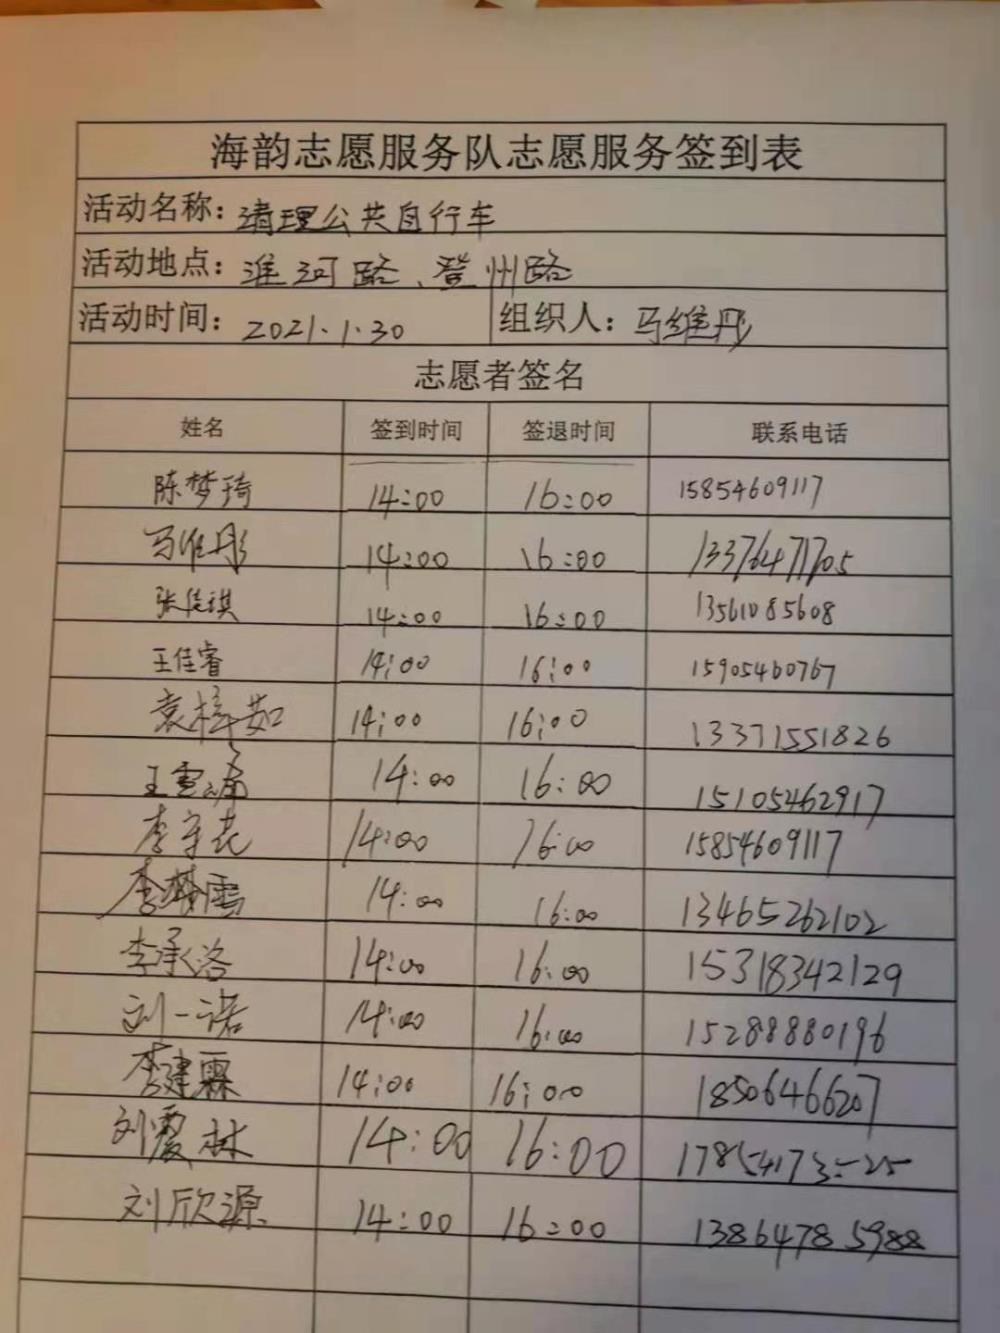 海韵志愿服务队志愿服务签到表
活动名称：清理公共自行车
活动地点：淮河路、登州路
活动时间：2021.1.30 组织人：马维彤
志愿者签名
姓名 签到时间 签退时间 联系电话
陈梦琦 14:00 16:00 15854609117
马维彤 14:00 16:00 13376471705
张佳琪 14:00 16:00 13561085608
王佳睿 14:00 16:00 15905460767
袁梓茹 14:00 16:00 13371551826
王 14:00 16:00 15105462917
李守花 14:00 16:00 15854609117
李梦雪 14:00 16:00 13465262102
李承洛 14:00 16:00 15318342129
刘一诺 14:00 16:00 15288880196
李建霖 14:00 16:00 18506466207
刘震林 14:00 16:00
刘欣源 14:00 16:00 13864785988